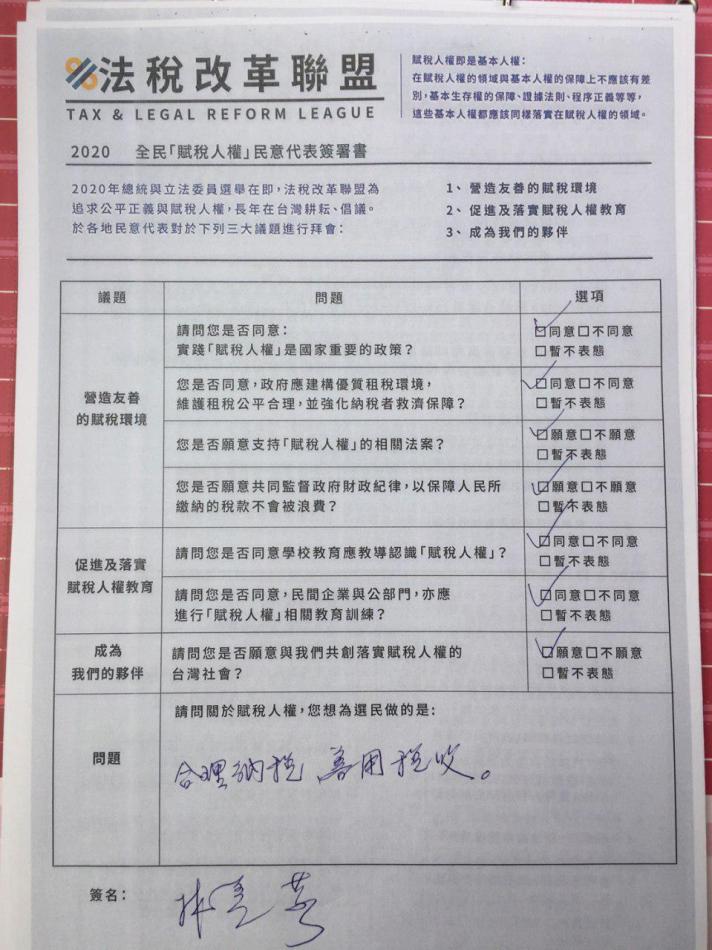 法稅改革聯盟
TAX & LEGAL REFORM LEAGUE
賦稅人權即是基本人權：
在賦稅人權的領域與基本人權的保障上不應該有差
別，基本生存權的保障、證據法則、程序正義等等，
這些基本人權都應該同樣落實在賦稅人權的領域。
2020 全民「賦稅人權」民意代表簽署書
2020年總統與立法委員選舉在即，法稅改革聯盟為
追求公平正義與賦稅人權，長年在台灣耕耘、倡議。
於各地民意代表對於下列三大議題進行拜會：
1、營造友善的賦稅環境
2、促進及落實賦稅人權教育
3、成為我們的夥伴
議題 問題 選項
營造友善
的賦稅環境
請問您是否同意：
實踐「賦稅人權」是國家重要的政策？
☐同意☐不同意
☐暫不表態
您是否同意，政府應建構優質租稅環境，
維護租稅公平合理，並強化納稅者救濟保障？
☐同意☐不同意
☐暫不表態
您是否願意支持「賦稅人權」的相關法案？
☐願意☐不願意
☐暫不表態
您是否願意共同監督政府財政紀律，以保障人民所
繳納的稅款不會被浪費？
☐願意☐不願意
☐暫不表態
促進及落實
賦稅人權教育
請問您是否同意學校教育應教導認識「賦稅人權」？
☐同意☐不同意
☐暫不表態
請問您是否同意，民間企業與公部門，亦應
進行「賦稅人權」相關教育訓練？
☐同意☐不同意
☐暫不表態
成為
我們的夥伴
請問您是否願意與我們共創落實賦稅人權的
台灣社會？
☐願意☐不願意
☐暫不表態
問題
請問關於賦稅人權，您想為選民做的是：
合理納稅 善用稅收。
簽名：